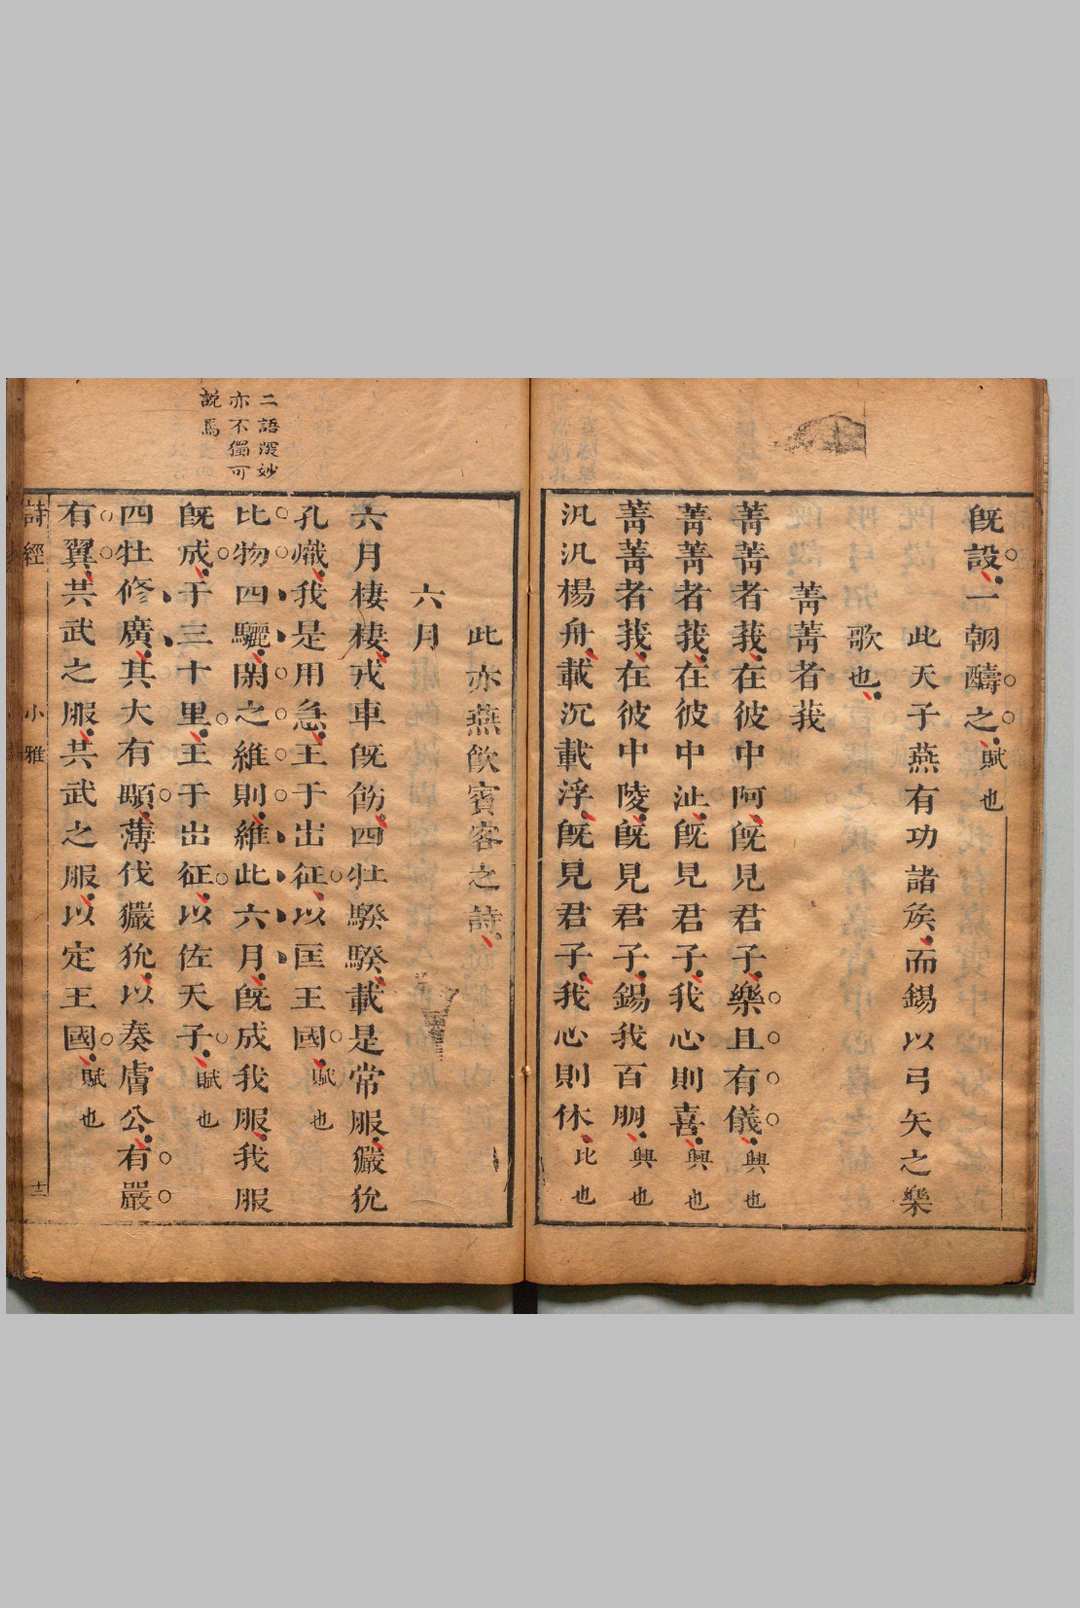 旣設一朝醻之賦也
此天子燕有功諸矦而錫以弓矢之樂
歌也
菁菁者莪
菁菁者莪在彼中阿旣見君子樂且有儀興也
菁菁者莪在彼中沚旣見君子我心則喜興也
菁菁者莪在彼中陵旣見君子錫我百朋興也
汎汎楊舟載沉載浮旣見君子我心則休比也
此亦燕飲賓客之詩
六月
六月棲棲戎車旣飭四牡騤騤載是常服玁狁
孔熾我是用急王于出征以匡王國賦也
比物四驪閑之維則維此六月旣成我服我服
旣成于三十里王于出征以佐天子賦也
四牡修廣其大有顒薄伐玁狁以奏膚公有嚴
有翼共武之服共武之服以定王國賦也
二語深妙
亦不獨可
說馬
詩經
小雅
十二